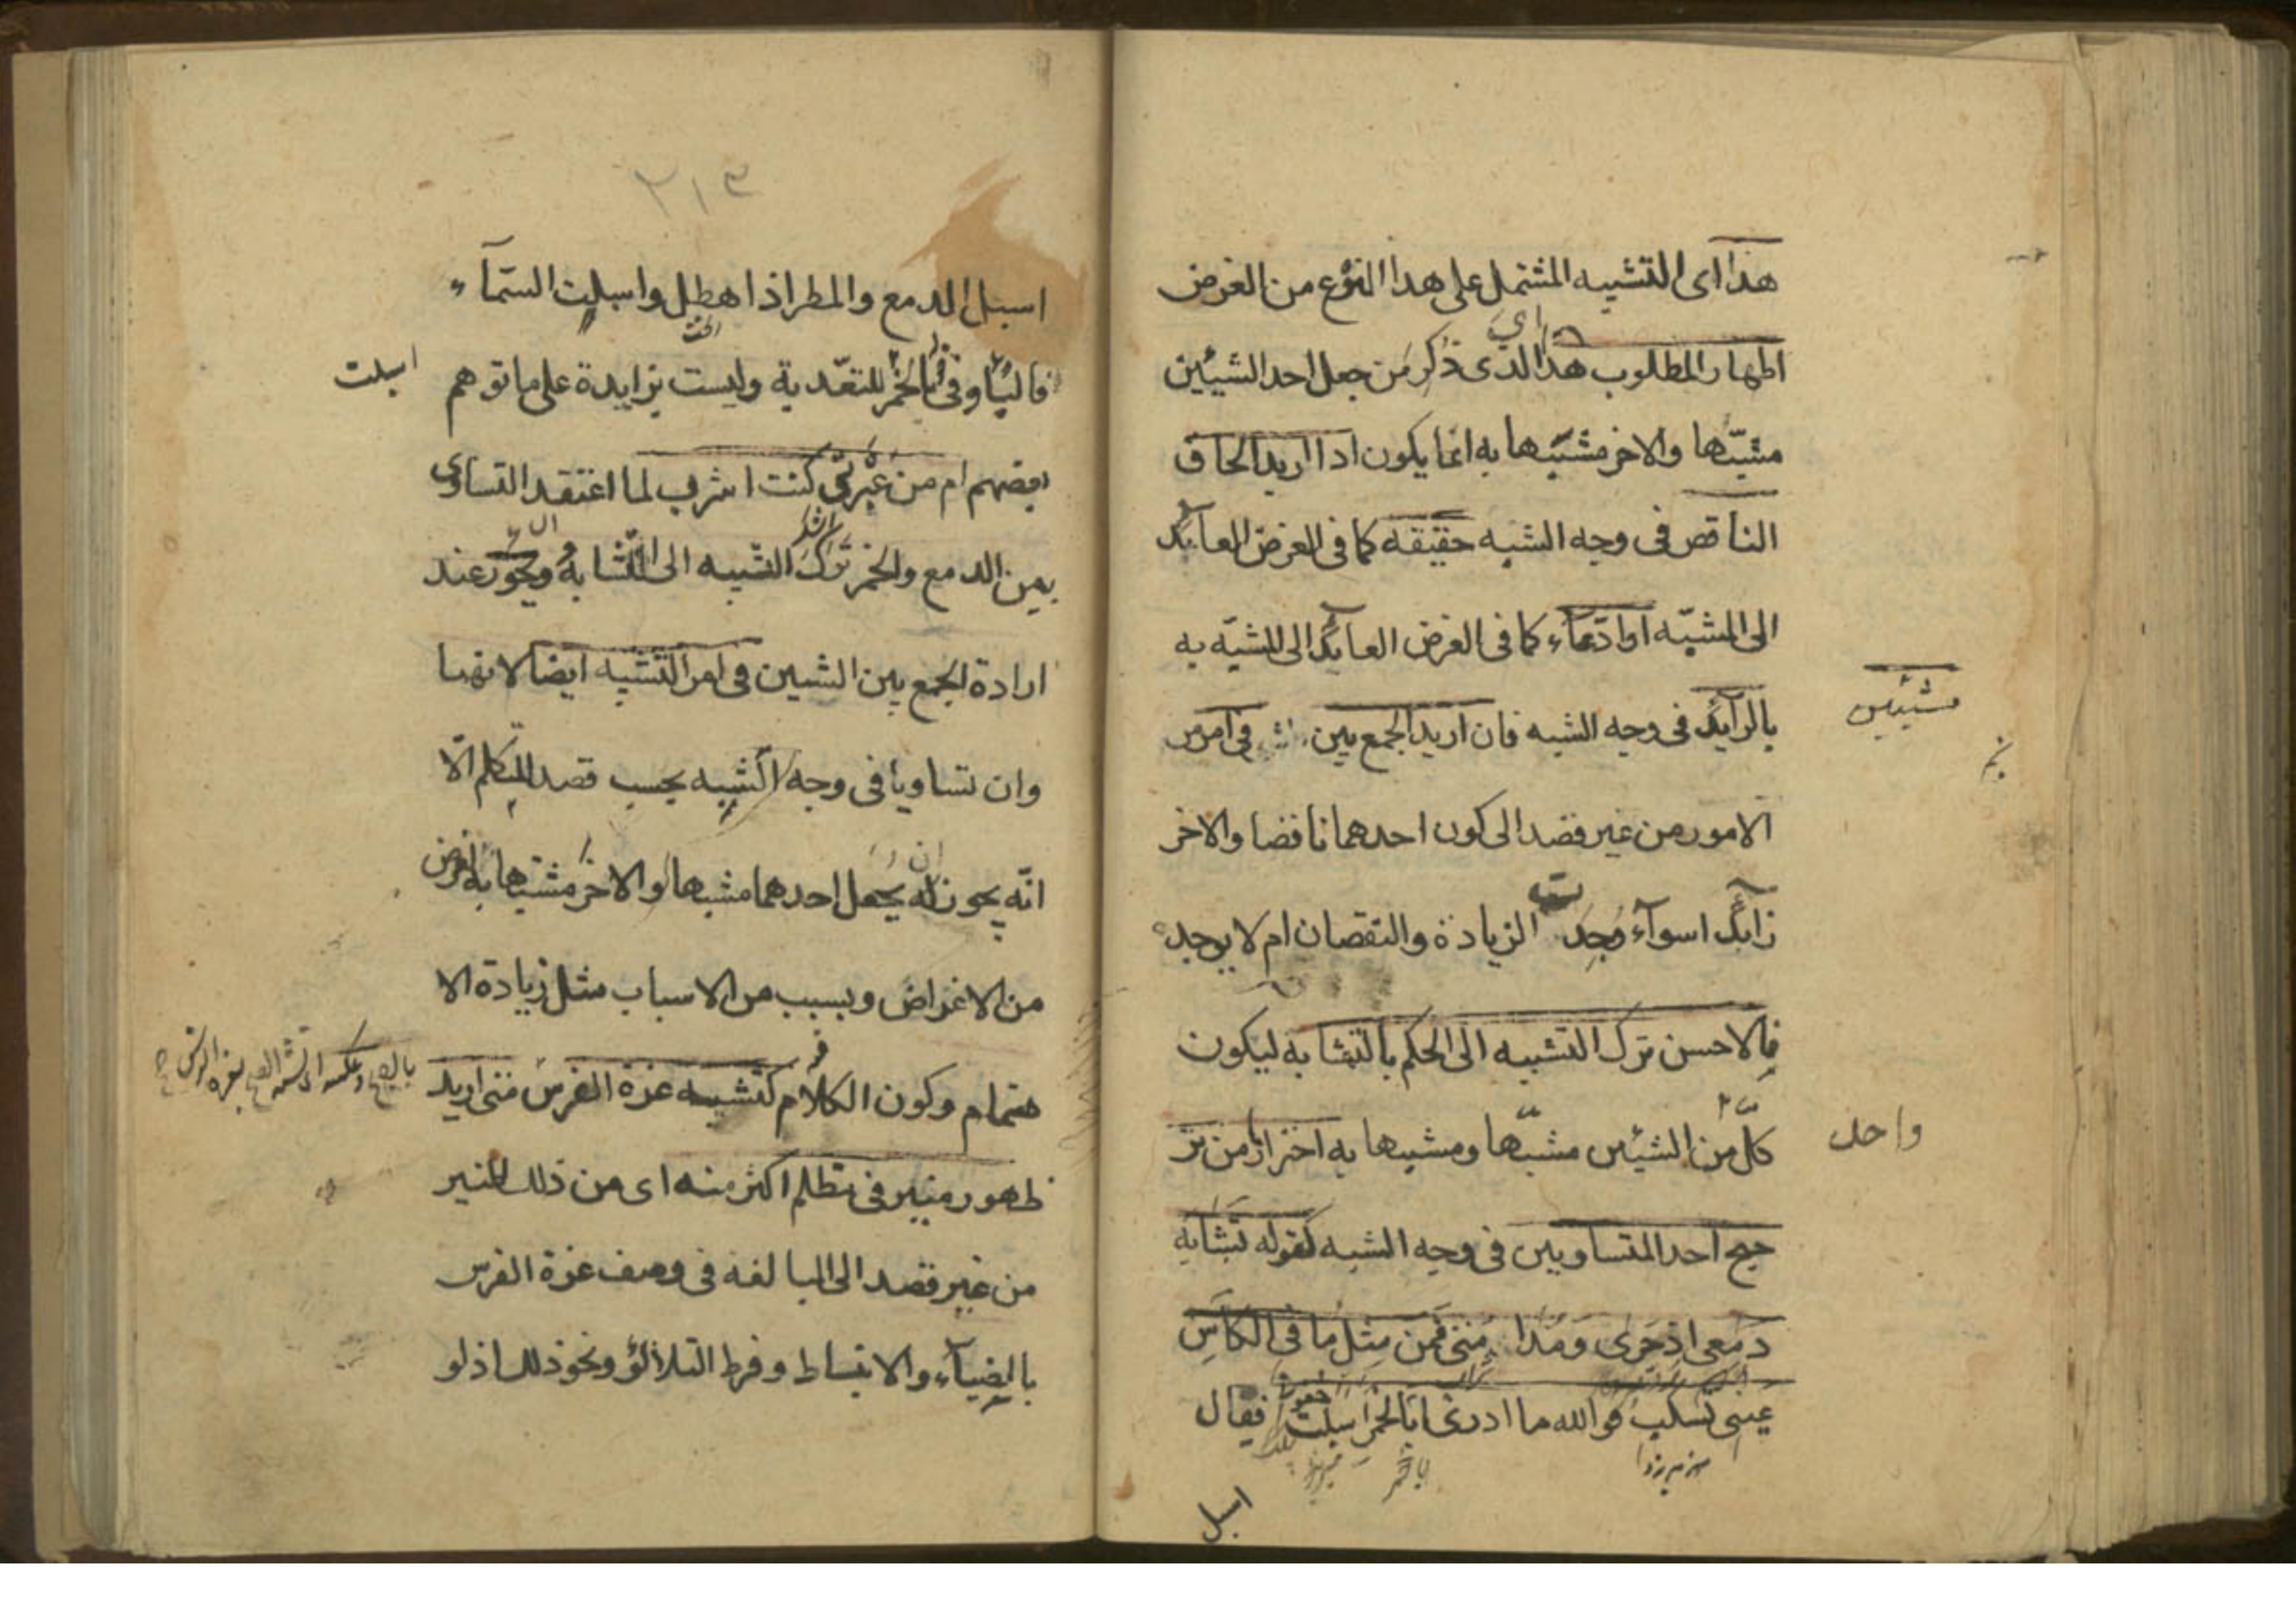 هذا اى التشبيه المشتمل على هذا النوع من الغرض
اظهار المطلوب هذا الذى ذكر من جعل احد الشيئين
مشبّها والاخر مشبّها به انما يكون اذا اريد الحاق
الناقص فى وجه الشبه حقيقه كما فى الغرض العائد
الى المشبّه او ادّعاء كما فى الغرض العائد الى المشبّه به
بالزائد فى وجه الشبه فان اريد الجمع بين فى امر من
شيئين
الامور من غير قصد الى كون احدهما ناقصا والاخر
زائدا سوآء وجدت الزيادة والنقصان ام لا يوجد
فالاحسن ترك التشبيه الى الحكم بالتشابه ليكون
كلّ من الشيئين مشبّها ومشبها به احترازا من تر
واحد
جيح احد المتساويين فى وجه الشبه كقوله تشابه
دمعى اذ جرى ومدامتى فمن مثل ما فى الكاس
عينى تسكب فوالله ما ادرى ابالخمر اسبلت فقال
اسبل
٢١٣
اسبل الدمع والمطر اذا هطل واسبلت السّمآء
فالباء فى ابالخمر للتعدية وليست بزايدة على ما توهم
اسبلت
بعضهم ام من عبرتى كنت اشرب لما اعتقد التساوى
بين الدمع والخمر ترك التشبيه الى التشابه ويجوز عند
ارادة الجمع بين الشيين فى امر التشبيه ايضا لانهما
وان تساويا فى وجه الشبه بحسب قصد المتكلم الّا
انّه يجوز له ان يجعل احدهما مشبها والاخر مشبّها به لغرض
من الاغراض وبسبب من الاسباب مثل زيادة الا
هتمام وكون الكلام كتشبيه غرة الفرس متى اريد
بالصبح وعكسه اى تشبيه الصبح بغرة الفرس
ظهور منير فى مظلم اكثر منه اى من ذلك المنير
من غير قصد الى المبالغه فى وصف غرة الفرس
بالضياء والانبساط وفرط التلألؤ ونحو ذلك اذ لو